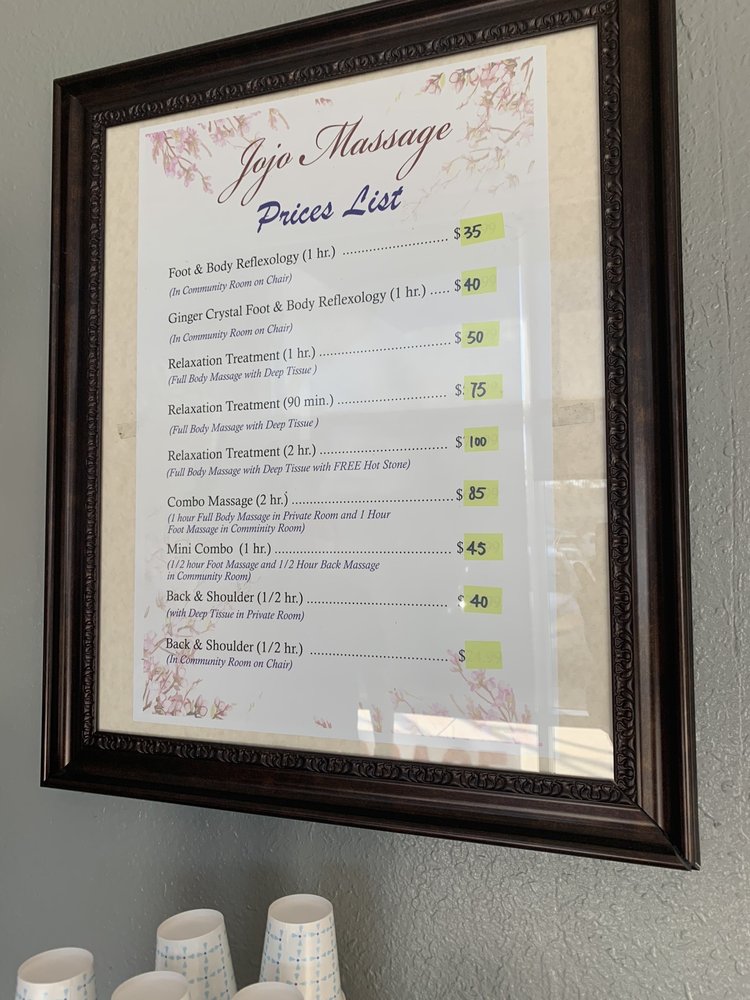 Jojo Massage
Prices List
Foot & Body Reflexology (1 hr.) ........................... $35
(In Community Room on Chair)
Ginger Crystal Foot & Body Reflexology (1 hr.) ..... $40
(In Community Room on Chair)
Relaxation Treatment (1 hr.) ................................. $50
(Full Body Massage with Deep Tissue )
Relaxation Treatment (90 min.) ............................ $75
(Full Body Massage with Deep Tissue )
Relaxation Treatment (2 hr.) ................................. $100
(Full Body Massage with Deep Tissue with FREE Hot Stone)
Combo Massage (2 hr.) ......................................... $85
(1 hour Full Body Massage in Private Room and 1 Hour
Foot Massage in Comminity Room)
Mini Combo (1 hr.) ............................................. $45
(1/2 hour Foot Massage and 1/2 Hour Back Massage
in Community Room)
Back & Shoulder (1/2 hr.) ................................... $40
(with Deep Tissue in Private Room)
Back & Shoulder (1/2 hr.) ................................... $
(In Community Room on Chair)